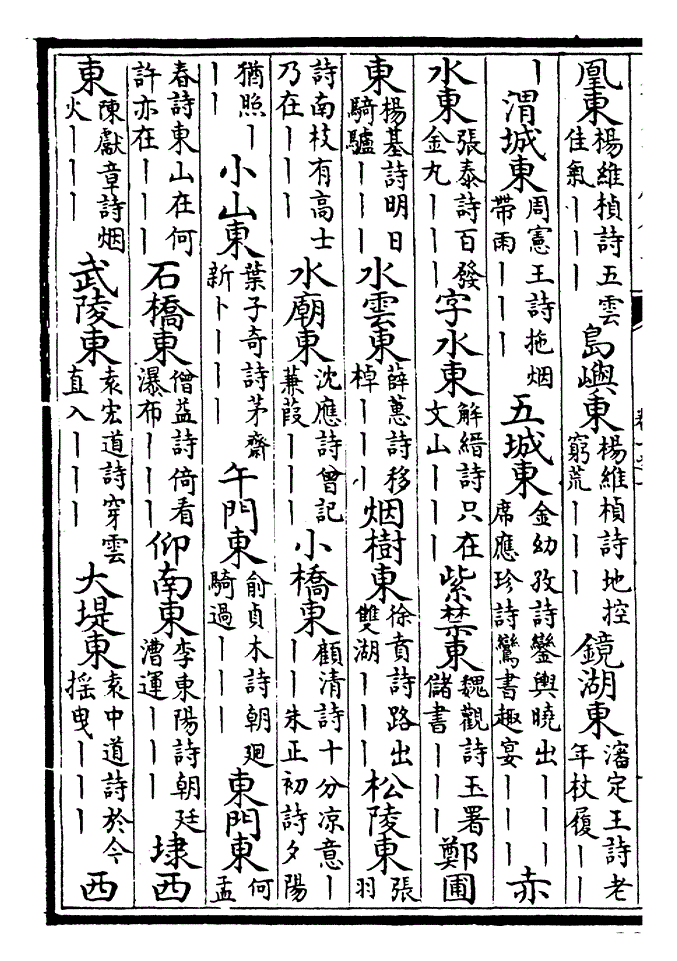 凰東楊維楨詩五雲佳氣丨丨丨島嶼東楊維楨詩地控窮荒丨丨丨鏡湖東瀋定王詩老年杖履丨丨
丨渭城東周憲王詩拖烟帶雨丨丨丨五城東金幼孜詩鑾輿曉出丨丨丨席應珍詩鸞書趣宴丨丨丨赤
水東張泰詩百發金丸丨丨丨字水東解縉詩只在文山丨丨丨紫禁東魏觀詩玉署儲書丨丨丨鄭圃
東楊基詩明日騎驢丨丨丨水雲東薛蕙詩移棹丨丨丨烟樹東徐賁詩路出雙湖丨丨丨松陵東張羽
詩南枝有高士乃在丨丨丨水廟東沈應詩曾記蒹葭丨丨丨小橋東顧清詩十分凉意丨丨丨朱正初詩夕陽
猶照丨丨丨小山東葉子奇詩茅齋新卜丨丨丨午門東俞貞木詩朝廻騎過丨丨丨東門東何孟
春詩東山在何許亦在丨丨丨石橋東僧益詩倚看瀑布丨丨丨仰南東李東陽詩朝廷漕運丨丨丨埭西
東陳獻章詩烟火丨丨丨武陵東袁宏道詩穿雲直入丨丨丨大堤東袁中道詩於今搖曳丨丨丨西